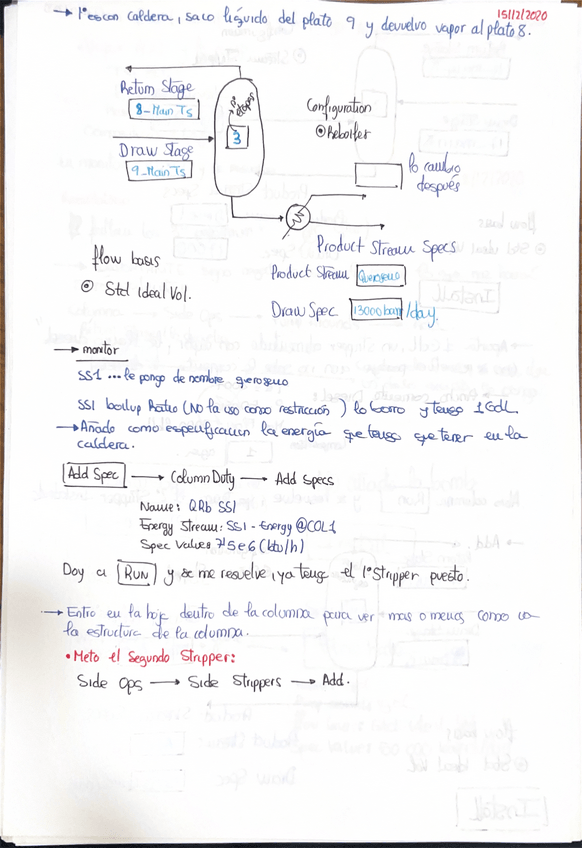 15/12/2020
→ 1º es con caldera, saco líquido del plato 9 y devuelvo vapor al plato 8.
Return Stage
8_Main TS
nº etapas
3
Configuration
◉ Reboiler
Draw Stage
9_Main TS
lo cambio
después
Product Stream Specs
flow basis
Product Stream Queroseno
◉ Std Ideal Vol.
Draw Spec 13000 barr/day
→ monitor
SS1 ... le pongo de nombre queroseno
SS1 boilup Ratio (NO la uso como restricción) lo borro y tengo 1 GdL.
→ Añado como especificación la energía que tengo que tener en la
caldera.
Add Spec → Column Duty → Add Specs
Name: QRb SS1
Energy Stream: SS1 - Energy @COL1
Spec Values 7'5e6 (btu/h)
Doy a RUN y se me resuelve, ya tengo el 1º Stripper puesto.
→ Entro en la hoja dentro de la columna para ver mas o menos como va
la estructura de la columna.
• Meto el Segundo Stripper:
Side Ops → Side Strippers → Add.